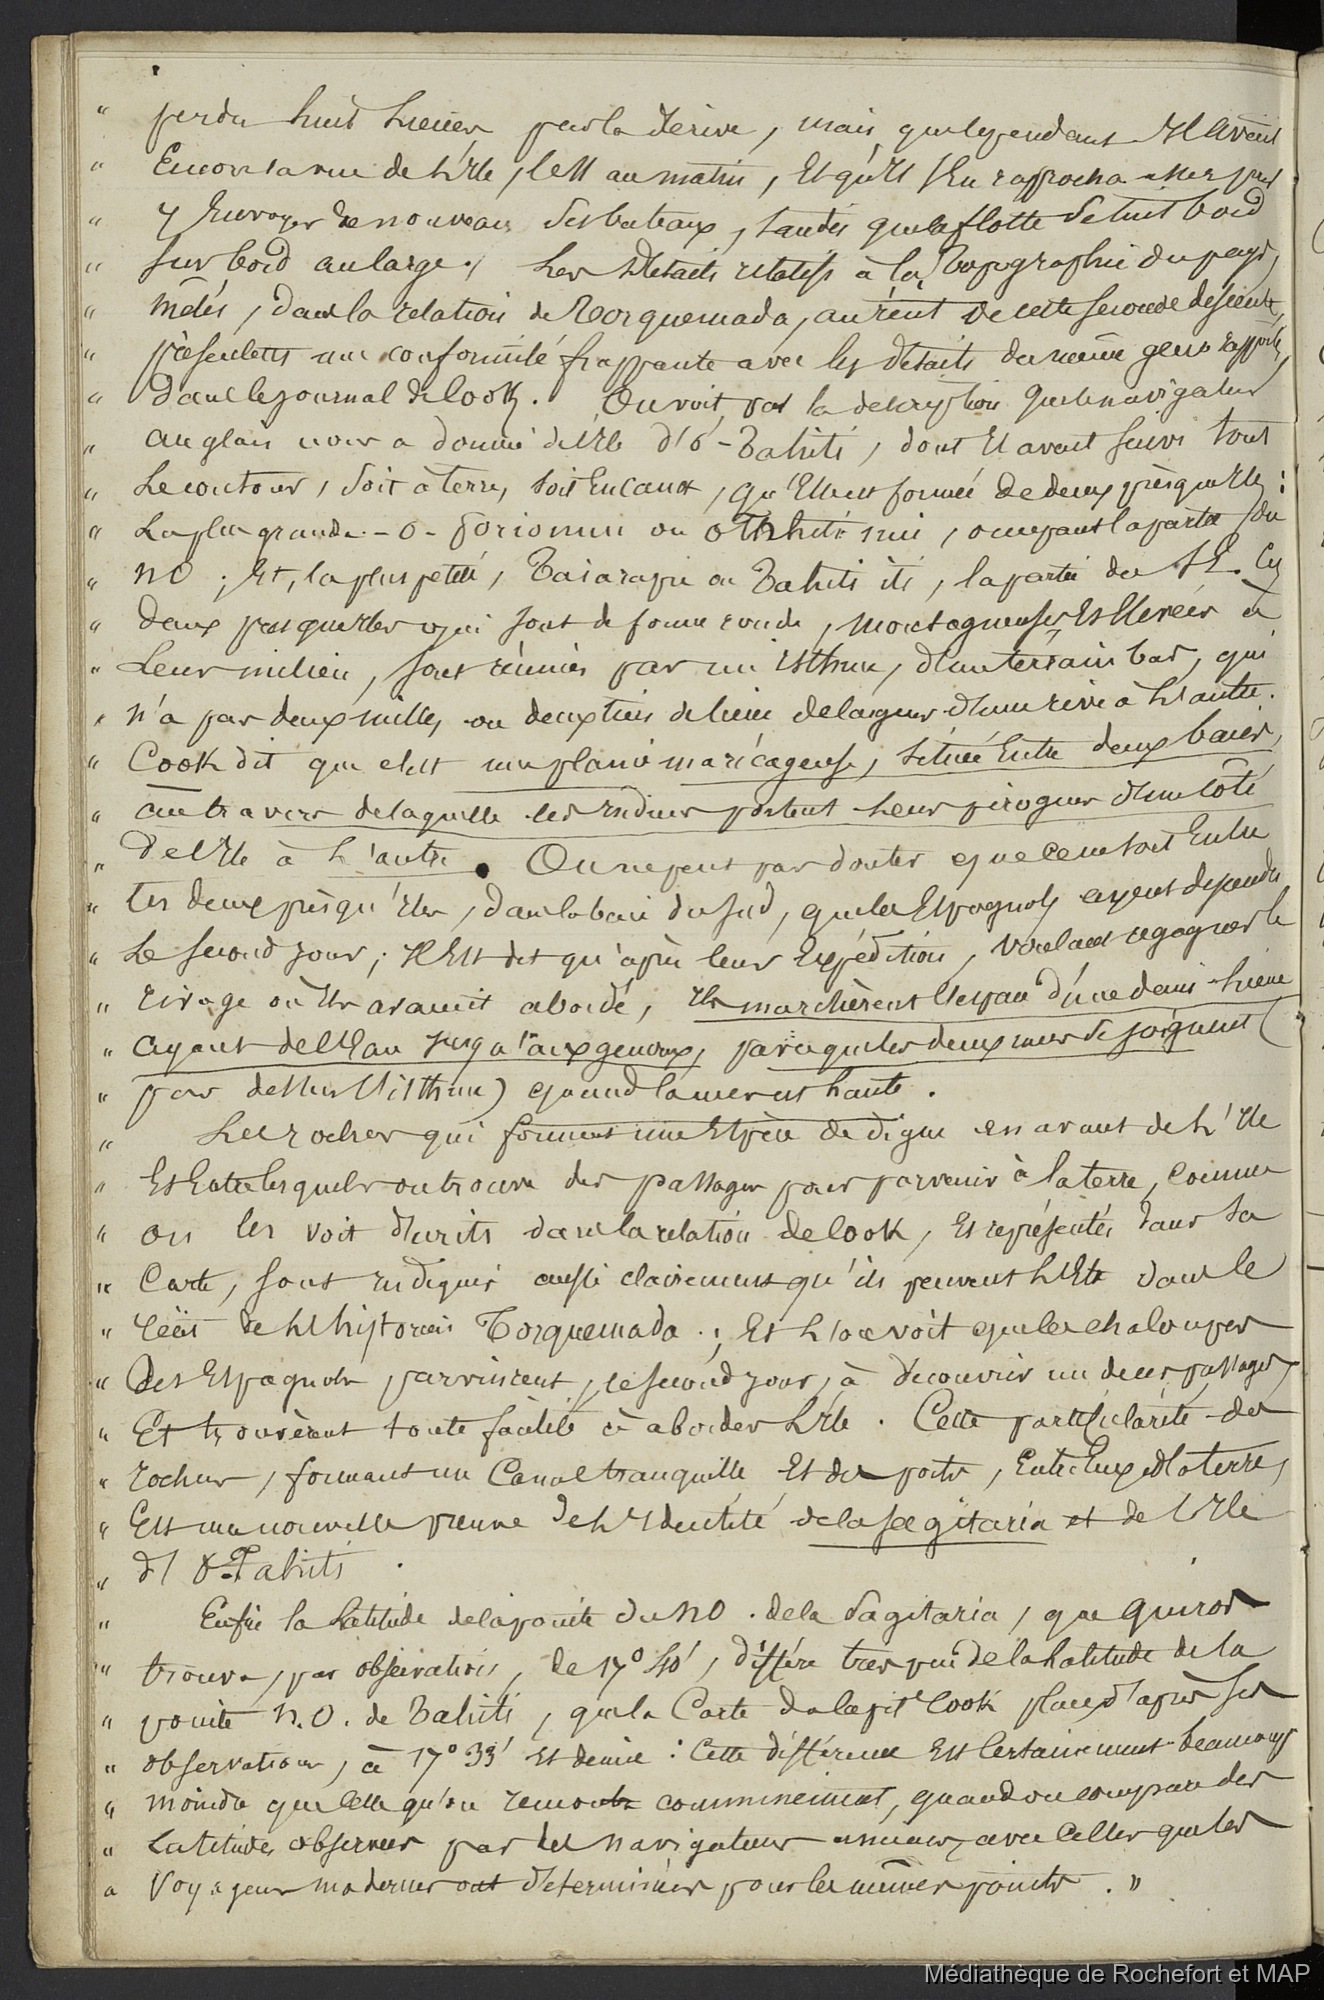 " perdu huit lieues par la dérive, mais que cependant Il avait
" Encore la vue de L'Ile, le 11 au matin, Et qu'Il s'En rapprocha assez pour
" y Envoyer de nouveau des bateaux, tandis que la flotte se tint bord
" sur bord au large. Les Détails relatifs à la Topographie du pays,
" mêlés, dans la relation de Torquemada, au récit de cette seconde descente,
" présentent une conformité frappante avec les détails du même genre rapportés,
" dans le journal de Cook. On voit par la description que le navigateur
" anglais nous a donnée de l'Ile d'O-Tahiti, dont Il avait suivi tout
" Le contour, soit à terre, soit En canot, qu'Elle est formée de deux presqu'Iles :
" La plus grande - O-Porionnu ou OTahiti nui, occupant la partie du
" NO ; Et, la plus petite, Taiarapu ou Tahiti iti, la partie du SE. Ces
" deux presqu'Iles qui sont de forme ronde, montagneuses Et Elevées à
" Leur milieu, sont réunies par un isthme, d'un terrain bas, qui
" n'a pas deux milles ou deux tiers de lieue de largeur d'une rive à L'autre.
" Cook dit que c'est une plaine marécageuse, située Entre deux baies,
" au travers de laquelle les Indiens portent Leurs pirogues d'un côté
" De l'Ile à L'autre. On ne peut pas douter que ce ne soit Entre
" les deux presqu'Iles, dans la baie du Sud, que les Espagnols ayent descendu
" Le second jour ; Il Est dit qu'après leur Expédition, voulant regagner le
" rivage où Ils avaient abordé, Ils marchèrent l'espace d'une demi-lieue
" ayant de l'Eau jusqu'aux genoux, parceque les deux mers se joignent (
" par dessus l'isthme) quand la mer est haute.
" Les rochers qui forment une Espèce de digue en avant de L'Ile
" Et Entre lesquels on trouve des passages pour parvenir à la terre, comme
" on les voit décrits dans la relation de Cook, Et représentés dans sa
" Carte, sont indiqués aussi clairement qu'ils peuvent L'Etre dans le
" récit de L'historien Torquemada ; Et L'on voit que les chaloupes
" Des Espagnols parvinrent, le second jour, à découvrir un de ces passages,
" Et trouvèrent toute facilité à aborder L'Ile. Cette particularité des
" rochers, formant un Canal tranquille Et des ports, Entre Eux et la terre,
" Est une nouvelle preuve de L'Identité de la Sagitaria et de L'Ile
" d'O-Tahiti.
" Enfin la Latitude de la pointe du NO. de la Sagitaria, que Quiros
" trouva, par observation, de 17° 40', diffère très peu de la Latitude de la
" pointe N.O. de Tahiti, que la Carte du capit Cook place d'après ses
" observations, à 17° 33' Et demie : Cette différence Est Certainement beaucoup
" moindre que Celle qu'on remonte communément, quand on compare des
" Latitudes observées par les navigateurs anciens, avec Celles que les
" Voyageurs modernes ont déterminées pour les mêmes points. "
Médiathèque de Rochefort et MAP